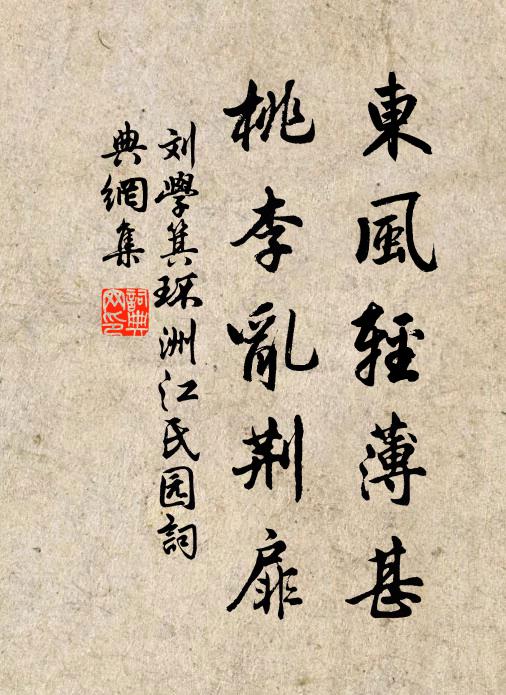 東風輕薄甚
桃李亂荆扉
刘學箕环洲江民园詞
典網集
詞典
网印